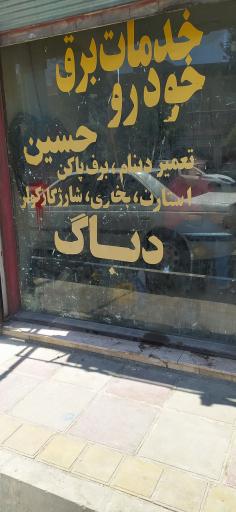 خدمات برق
خودرو
حسین
تعمیر دینام، برف پاکن
استارت، بخاری، شارژ گاز کولر
دباگ